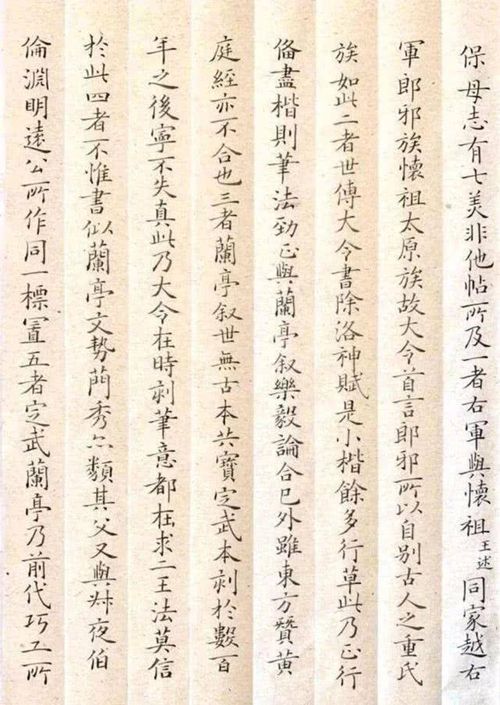 保母志有七美非他帖所及一者右軍與懷祖王述同家越右
軍郎邪族懷祖太原族故大令首言郎邪所以自别古人之重氏
族如此二者世傳大令書除洛神賦是小楷餘多行草此乃正行
俻盡楷則筆法勁正與蘭亭叙樂毅論合已外雖東方贊黄
庭經亦不合也三者蘭亭叙世無古本共寶定武本刻於數百
年之後寧不失真此乃大令在時刻筆意都在求二王法莫信
於此四者不惟書似蘭亭文勢蕳秀亦類其父又與叔夜伯
倫淵明遠公所作同一標置五者定武蘭亭乃前代巧工所